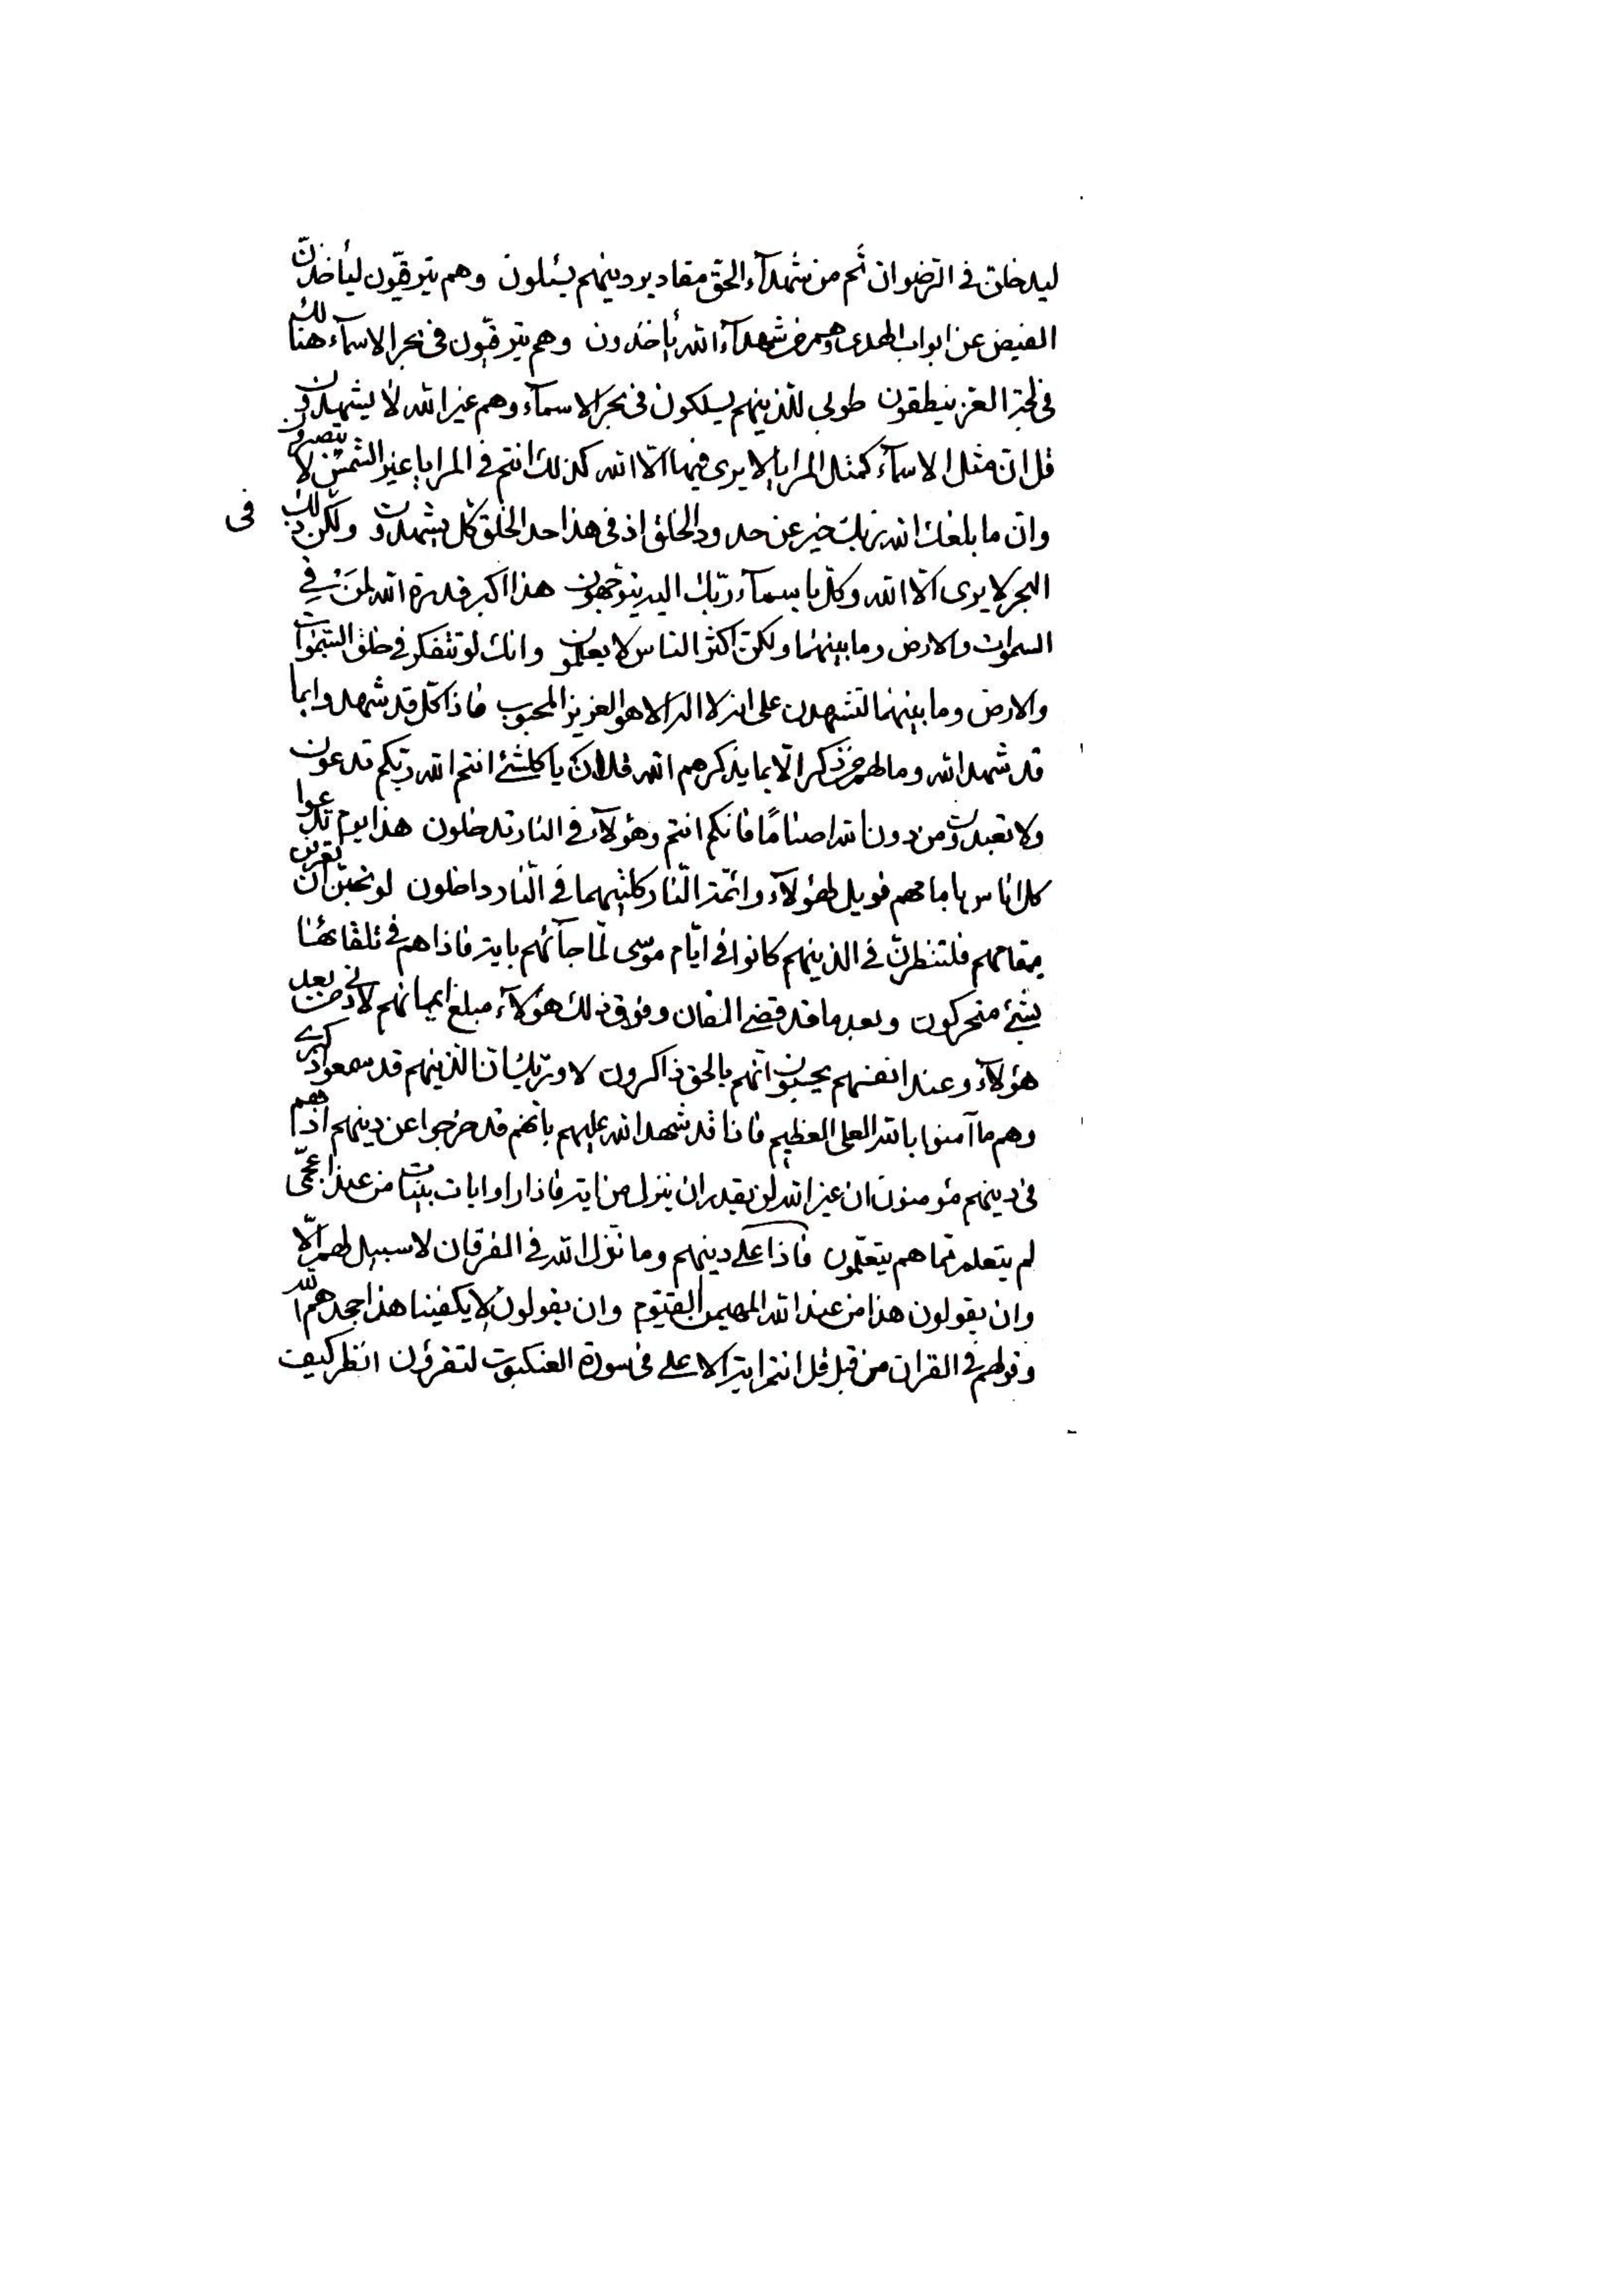 ليدخلن في الرضوان ثم من شهدآء الحق مقادير دينهم يسئلون وهم يترقبون ليأخذن
الفيض عن ابواب الهدى وهم من شهدآء الله يأخذون وهم يترقبون في بحر الاسمآء هنالك
في لجة العز ينطقون طوبى للذينهم يسلكون في بحر الاسمآء وهم غير الله لا يشهدون
قل ان مثل الاسمآء كمثل المرايا لا يرى فيها الا الله كذلك انتم في المرايا غير الشمس لا تبصرون
وان ما بلغك الله ربك خير عن حدود الخلق اذ في هذا حد الخلق كل يشهدون ولكن ذلك في
البحر لا يرى الا الله وكل باسمآء ربك اليه يتوجهون هذا اكبر قدرة الله لمن في
السموات والارض وما بينهما ولكن اكثر الناس لا يعلمون وانك لو تتفكر في خلق السموات
والارض وما بينهما لتشهدن على انه لا اله الا هو العزيز المحبوب فاذا كل قد شهدوا بما
قد شهد الله وما لهم من ذكر الا بما يذكرهم الله قل ان يا كلشئ انتم الله ربكم تدعون
ولا تعبدون من دون الله اصناما فانكم انتم وهؤلآء في النار تدخلون هذا يوم تدعوا
كل اناس بامامهم فويل لهؤلآء وائمة النار كلتيهما في النار داخلون لو تحبن ان تعرفن
مقامهم فلتنظرن في الذينهم كانوا في ايام موسى لما جآئهم باية فاذا هم في تلقائها
بشئ متحركون وبعد ما قد قضى الفان وفوق ذلك هؤلآء مبلغ ايمانهم لادنى بعد
هؤلآء وعند انفسهم يحسبون انهم بالحق ذاكرون لا وربك ان الذينهم قد سمعوا ذكرى
وهم ما آمنوا بالله العلي العظيم فاذا قد شهد الله عليهم بانهم قد خرجوا عن دينهم اذ هم
في دينهم مؤمنون ان غير الله لن يقدر ان ينزل من اية فاذا راوا ايات بينات من عند اعجمي
لم يتعلم مما هم يتعلمون فاذا على دينهم وما نزل الله في الفرقان لا سبيل لهم الا
وان يقولون هذا من عند الله المهيمن القيوم وان يقولون لا يكفينا هذا حجدهم الله
وقولهم في القران من قبل قل انتم اية الاعلى في سورة العنكبوت لتقرؤن انظر كيف